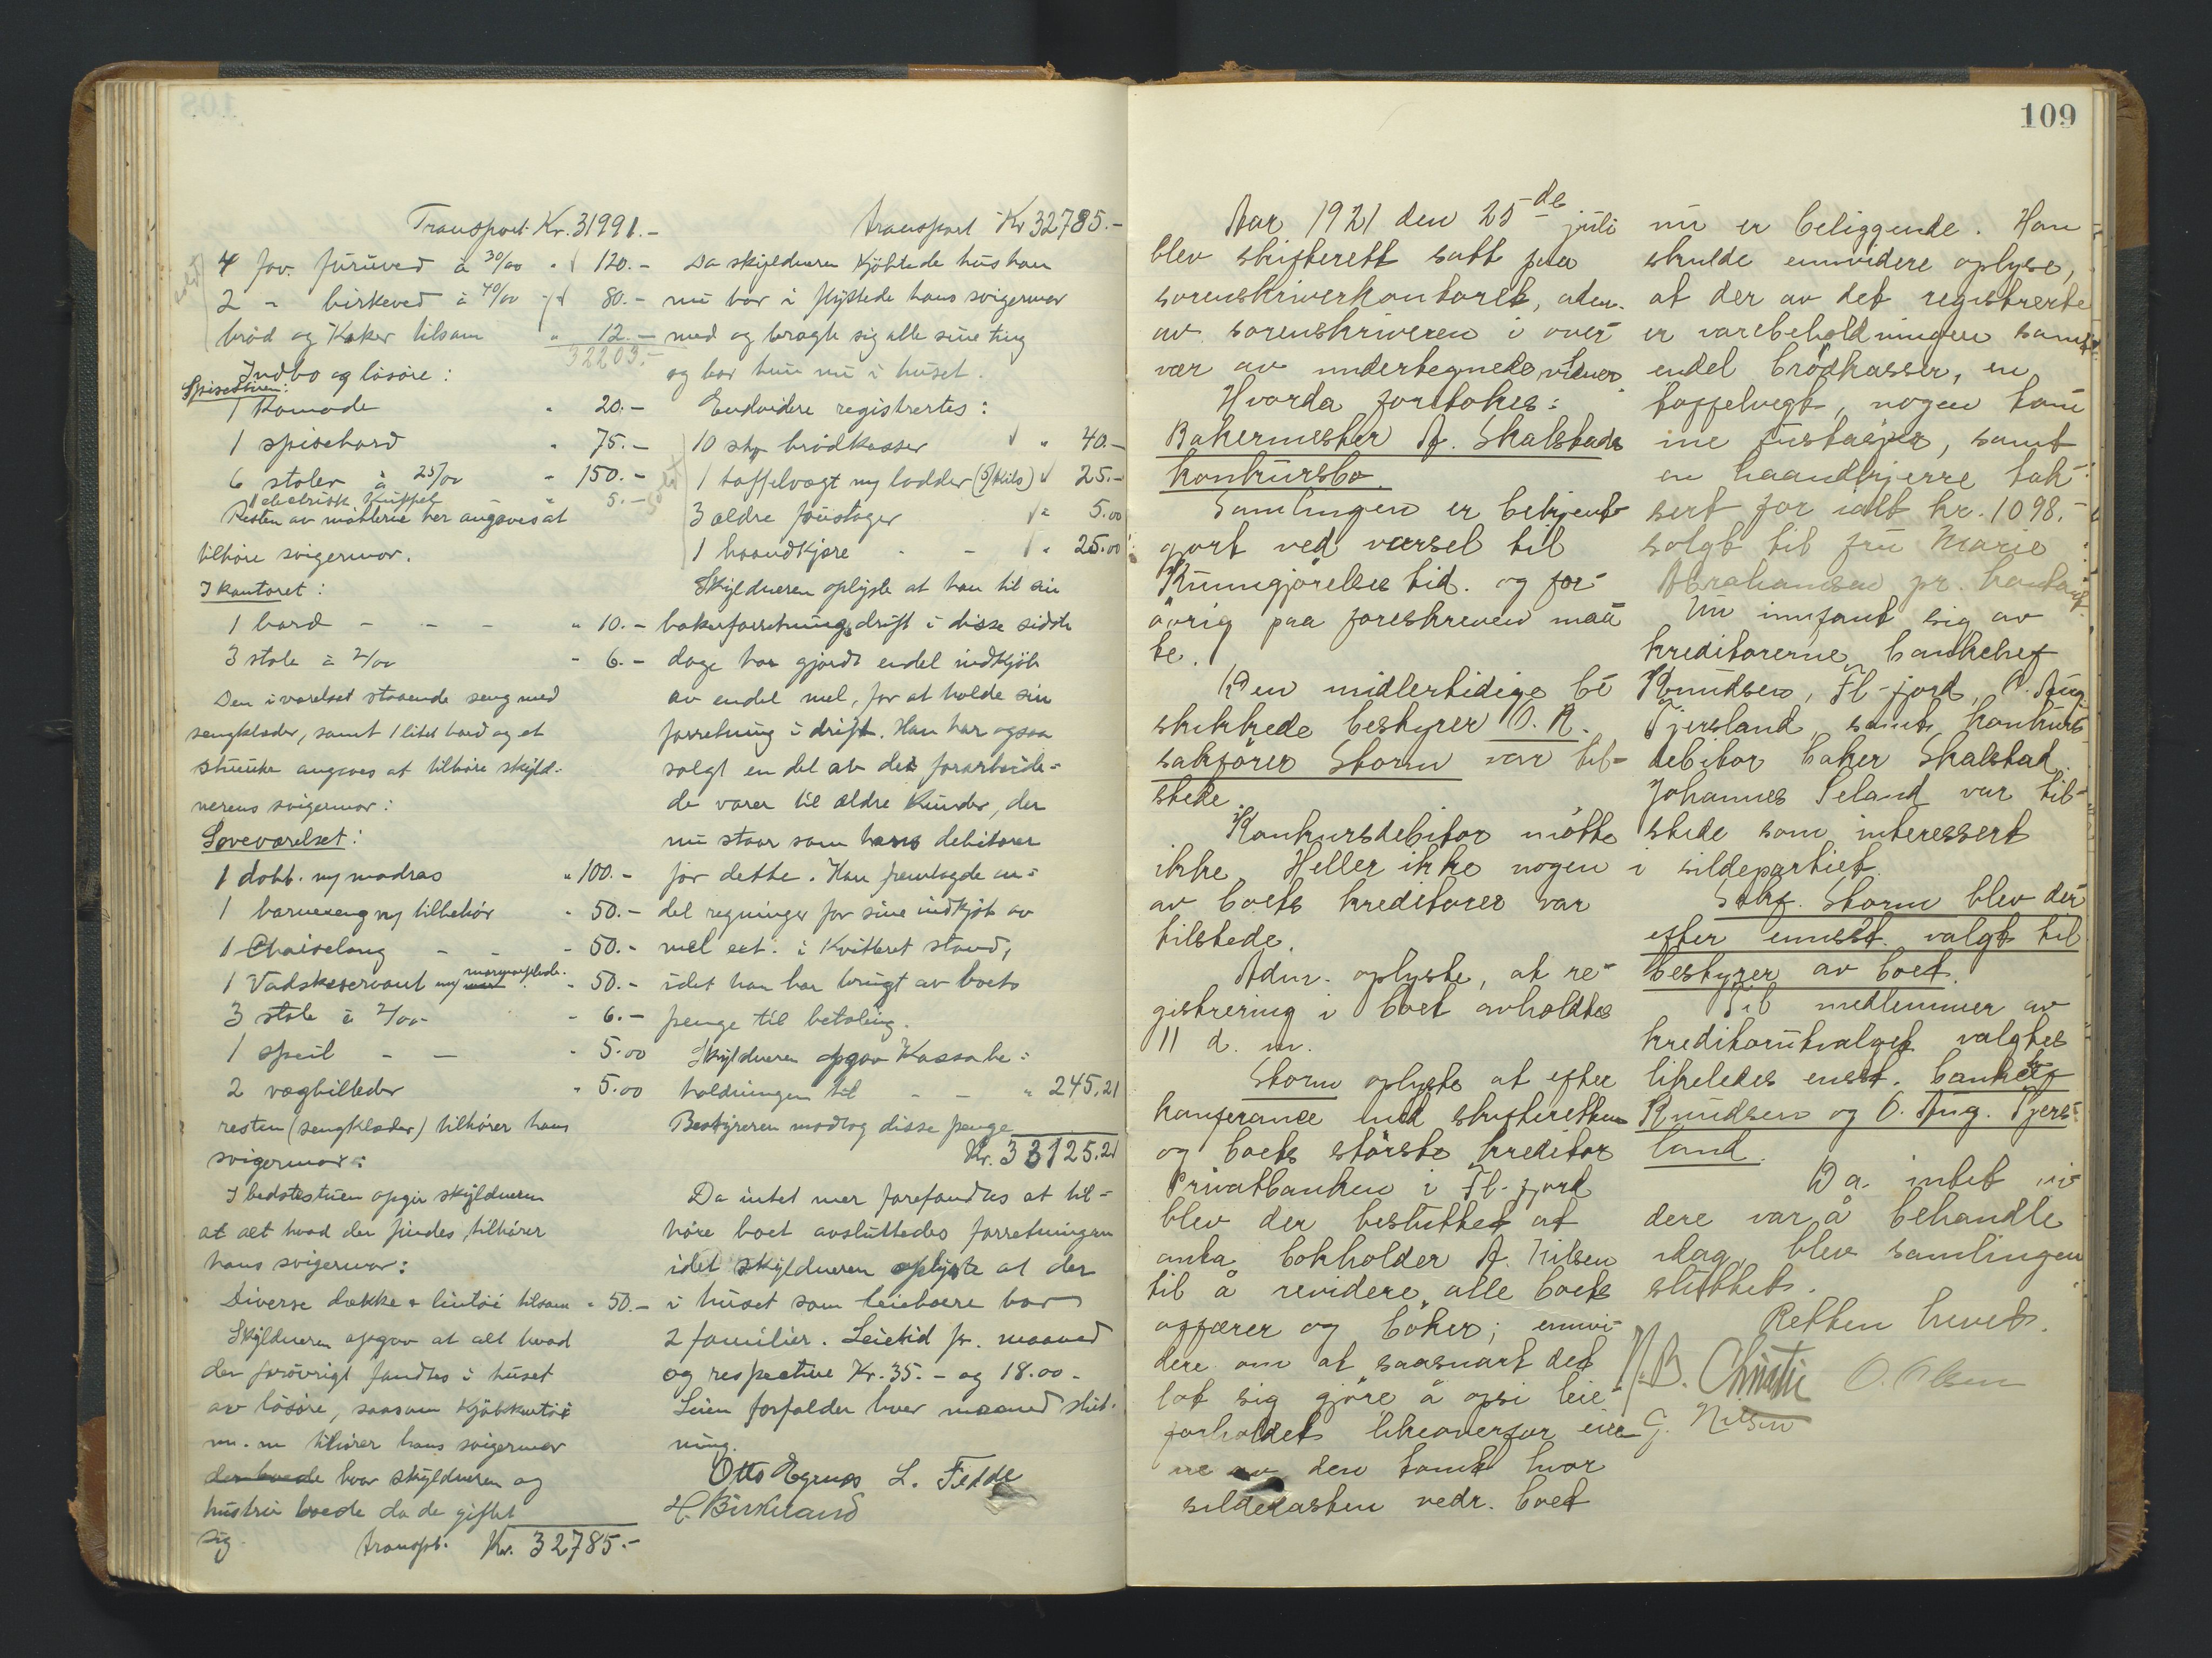 Transport Kr. 31991.-
4 fav. furuved à 30/00 " 120.-
2 - birkeved à 40/00 - 80.-
brød og Kaker tilsam " 12.-
32203.-
Indbo og løsøre:
Spisestuen:
1 Komode " 20.-
1 spisebord " 75.-
6 stoler à 25/00 " 150.-
1 electrisk Kuppel - " 5.-
Resten av møblerne her angaves at
tilhøre svigermor.
I kontoret:
1 bord - - - " 10.-
3 stole à 2/00 " 6.-
Den i værelset staaende seng med
sengklæder, samt 1 litet bord og et
angaves at tilhøre skyld-
nerens svigermor:
Soveværelset:
1 dobb. ny madras " 100.-
1 barneseng m/ tilbehör " 50.-
1 Chaiselong - - " 50.-
1 Vadskeservant m/ marmorplade. " 50.-
3 stole à 2/00 - " 6.-
1 speil - - " 5.00
2 vægbilleder " 5.00
resten (sengklæder) tilhører hans
svigermor:
I bedstestuen opgir skyldneren
at alt hvad der findes, tilhører
hans svigermor:
Diverse dække & lintöi tilsam " 50.-
Skyldneren opgav at alt hvad
der forøvrigt fandtes i huset
av løsøre, saasom Kjökkentöi
m. m tilhører hans svigermor
der boede hvor skyldneren og
hustru boede da de giftet
sig.
transpt. Kr. 32785.-
transport Kr 32785.-
Da skyldneren Kjöbte de hus han
nu bor i flyttede hans svigermor
med og bragte sig alle sine ting
og bor hun nu i huset.
Endvidere registrertes:
10 stk brödkasser " 40.-
1 taffelvægt m/ lodder (5/kilo) " 25.-
3 ældre foustager " 5.00
1 haandkjære - - " 25.00
Skyldneren oplyste at han til sin
bakerforretnings drift i disse sidste
dage har gjordt endel indkjöb
av endel mel, for at holde sin
forretning i drift. Han har ogsaa
solgt en del av det forarbeide-
de varer til ældre Kunder, der
nu staar som hans debitorer
for dette. Han fremlagde en-
del regninger for sine indkjöb av
mel ect. i Kvitteret stand,
idet han har brugt av boets
penge til betaling.
Skyldneren opgav Kassabe-
holdningen til - - " 245,21
Bestyreren modtog disse penge
Kr. 33125.21
Da intet mer forefandtes at til-
høre boet avsluttedes forretningen
idet skyldneren oplyste at der
i huset som leieboere bor
2 familier. Leietid pr. maaned
og respective Kr. 35.- og 18.00 -
Leien forfalder hver maaned slut-
ning.
Otto L. Fedde
H. Birkeland
109
Aar 1921 den 25de juli
blev skifterett satt paa
sorenskriverkontoret, adm.
av sorenskriveren i over-
vær av undertegnede vidner.
Hvorda foretokes:
Bakermester A. Skalstads
konkursbo.
Samlingen er bekjent-
gjort ved varsel til
Kunngjörelsestid. og for-
övrig paa foreskreven maa-
te.
Den midlertidige be-
skikkede bestyrer O. R.
sakförer Storm var til-
stede
Konkursdebitor mötte
ikke. Heller ikke nogen
av boets kreditorer var
tilstede.
Adm. oplyste, at re-
gistrering i boet avholdtes
11 d. m.
Storm oplyste at efter
konferance med skifteretten
og boets störste kreditor
Privatbanken i Fl-fjord
blev der besluttet at
anta bokholder A. Nilsen
til å revidere alle boets
affærer og böker; ennvi-
dere om at saasnart det
lot sig gjöre å opsi leie-
forholdet likeoverfor eie-
re av den tomt hvor
sildekasten vedr. boet
nu er beliggende. Han
skulde ennvidere oplyse,
at der av det registrerte
er varebeholdningen samt
endel brödkasser, en
taffelvegt, nogen tom-
me fustasjer, samt
en haandkjerre tak-
sert for ialt kr. 1098.-
solgt til fru Marie
Abrahamsen pr. kontant.
Nu innfant sig av
kreditorerne bankchef
Knudsen, Fl-fjord, O. Aug.
Tjersland, samt konkurs-
debitor baker Skalstad.
Johannes Seland var til-
stede som interessert
i sildepartiet.
Sakf. Storm blev der-
efter ennst. valgt til
bestyrer av boet.
Til medlemmer av
kreditorutvalget valgtes
likeledes enst. bankchef
Knudsen og O. Aug. Tjers-
land.
Da intet vi-
dere var å behandle
idag, blev samlingen
sluttet.
Retten hevet.
N. B. Christie O. Olsen
G. Nilsen